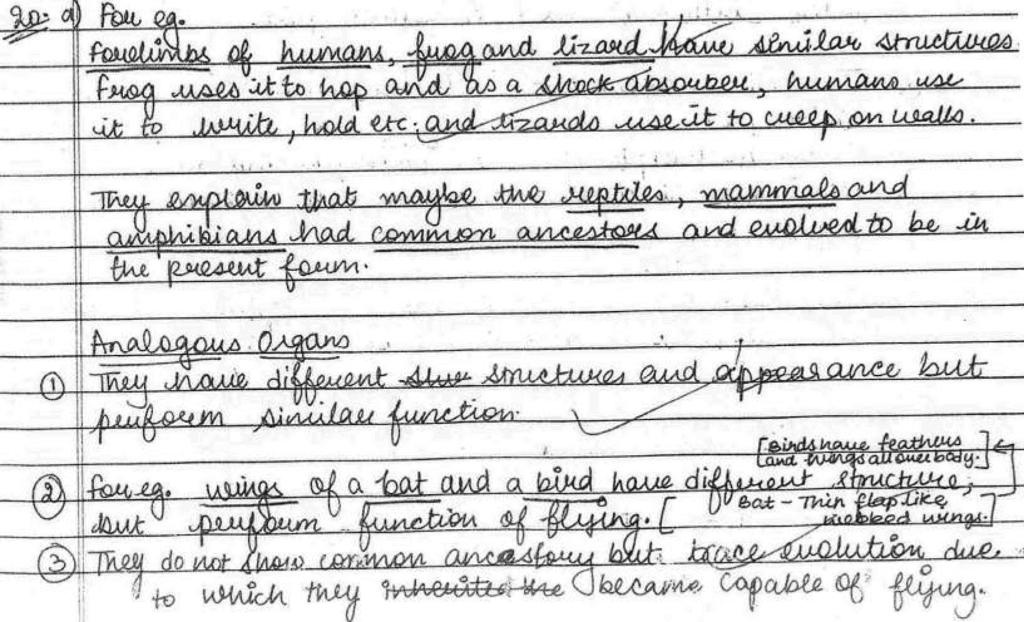 20. a) For eg.
forelimbs of humans, frog and lizard have similar structures
Frog uses it to hop and as a shock absorber, humans use
it to write, hold etc. and lizards use it to creep on walls.
They explain that maybe the reptiles, mammals and
amphibians had common ancestors and evolved to be in
the present form.
Analogous Organs
① They have different structures and appearance but
perform similar function.
[Birds have feathers
and wings all over body.]
② For eg. wings of a bat and a bird have different structure,
Bat - Thin flap like
but perform function of flying. [
webbed wings.]
③ They do not show common ancestory but trace evolution due
to which they inherited the became capable of flying.